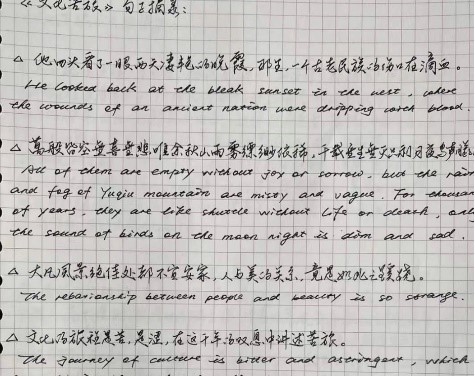 《文化苦旅》句子摘录：
△ 他回头看了一眼西天凄艳的晚霞，那里，一个古老民族的伤口在滴血。
He looked back at the bleak sunset in the west, where
the wounds of an ancient nation were dripping with blood.
△ 萬般皆空無喜無悲，唯余秋山雨雾缥缈依稀，千载無生無死只剩月夜鸟声
All of them are empty without joy or sorrow, but the rain
and fog of Yuqiu mountain are misty and vague. For thousan
of years, they are like shuttle without life or death, only
the sound of birds on the moon night is dim and sad.
△ 大凡风景绝佳处都不宜安家，人与美的关系，竟是如此之蹊跷。
The rebarionship between people and beauty is so strange.
△ 文化的旅程是苦，是涩，在这千年的叹息中讲述苦旅。
The journey of culture is bitter and astringent, which